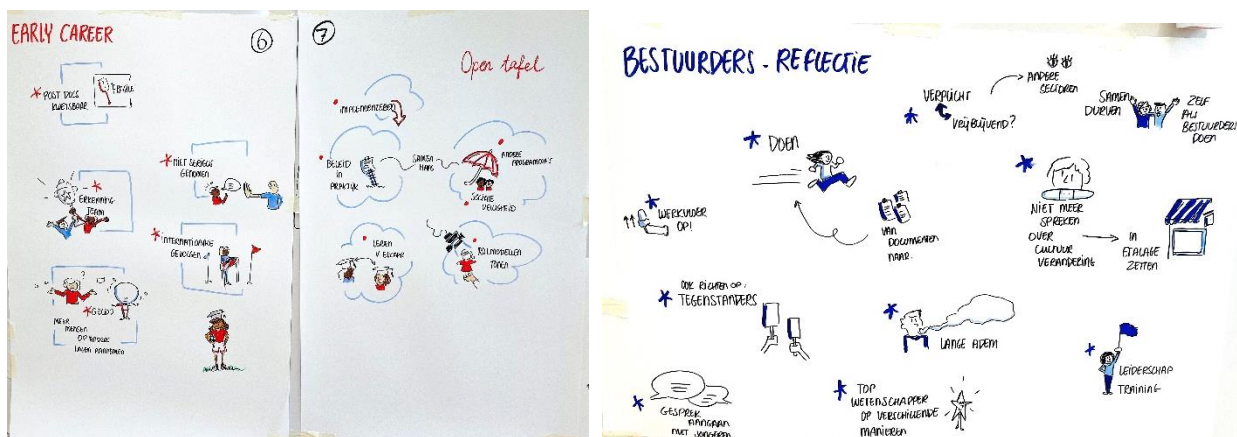 EARLY CAREER
6
* POST DOCS
KWETSBAAR
* NIET SERIEUS
GENOMEN
*
ERKENNING
TEAM
* INTERNATIONALE
GEVOLGEN
?
* GELD?
MEER
MENSEN
OP
LAGEN AANNEMEN
7
Open tafel
IMPLEMENTEREN
BELEID
IN
PRAKTIJK
SAMEN
HANG
ANDERE
PROGRAMMA'S
SOCIALE
VEILIGHEID
LEREN
V ELKAAR
ROLMODELLEN
TONEN
BESTUURDERS - REFLECTIE
* VERPLICHT
VRIJBLIJVEND?
ANDERE
SECTOREN
SAMEN
DURVEN
ZELF
ALS
BESTUURDERS
DOEN
* DOEN
* WERKVLOER
OP!
VAN
DOCUMENTEN
NAAR
*
NIET MEER
SPREKEN
OVER
CULTUUR
VERANDERING
IN
ETALAGE
ZETTEN
OOK RICHTEN OP:
* TEGENSTANDERS
*
LANGE ADEM
*
LEIDERSCHAP
TRAINING
*
GESPREK
AANGAAN
MET JONGEREN
* TOP
WETENSCHAPPER
OP VERSCHILLENDE
MANIEREN